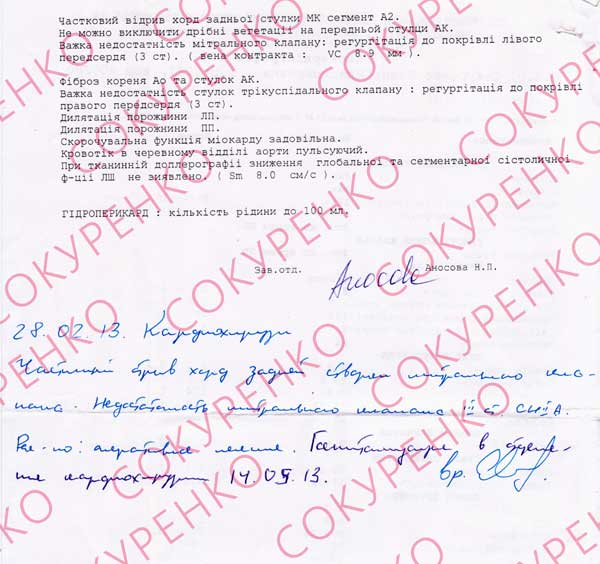 Частковий відрив хорд задньої стулки МК сегмент А2.
Не можно виключити дрібні вегетації на передньой стулци АК.
Важка недостатність мітрального клапану: регургітація до покрівлі лівого
передсердя (3 ст). ( вена контракта : VC 8.9 мм ).
Фіброз кореня Ао та стулок АК.
Важка недостатність стулок трікуспідального клапану : регургітація до покрівлі
правого передсердя (3 ст).
Дилятація порожнини ЛП.
Дилятація порожнини ПП.
Скорочувальна функція міокарду задовільна.
Кровотік в черевному відділі аорти пульсуючий.
При тканинній доплерографії зниження глобальної та сегментарої сістоличної
ф-ціі ЛШ не зиявлено. ( Sm 8.0 см/с ).
ГІДРОПЕРИКАРД : кількість рідини до 100 мл.
Зав.отд. Аносова Аносова Н.П.
28.02.13. Кардиохирург
Частичный отрыв хорд задней створки митрального кла-
пана. Недостаточность митрального клапана III ст. СН II А.
Рек-но: оперативное лечение. Госпитализация в отделе-
ние кардиохирургии 14.05.13. вр.
СОКУРЕНКО